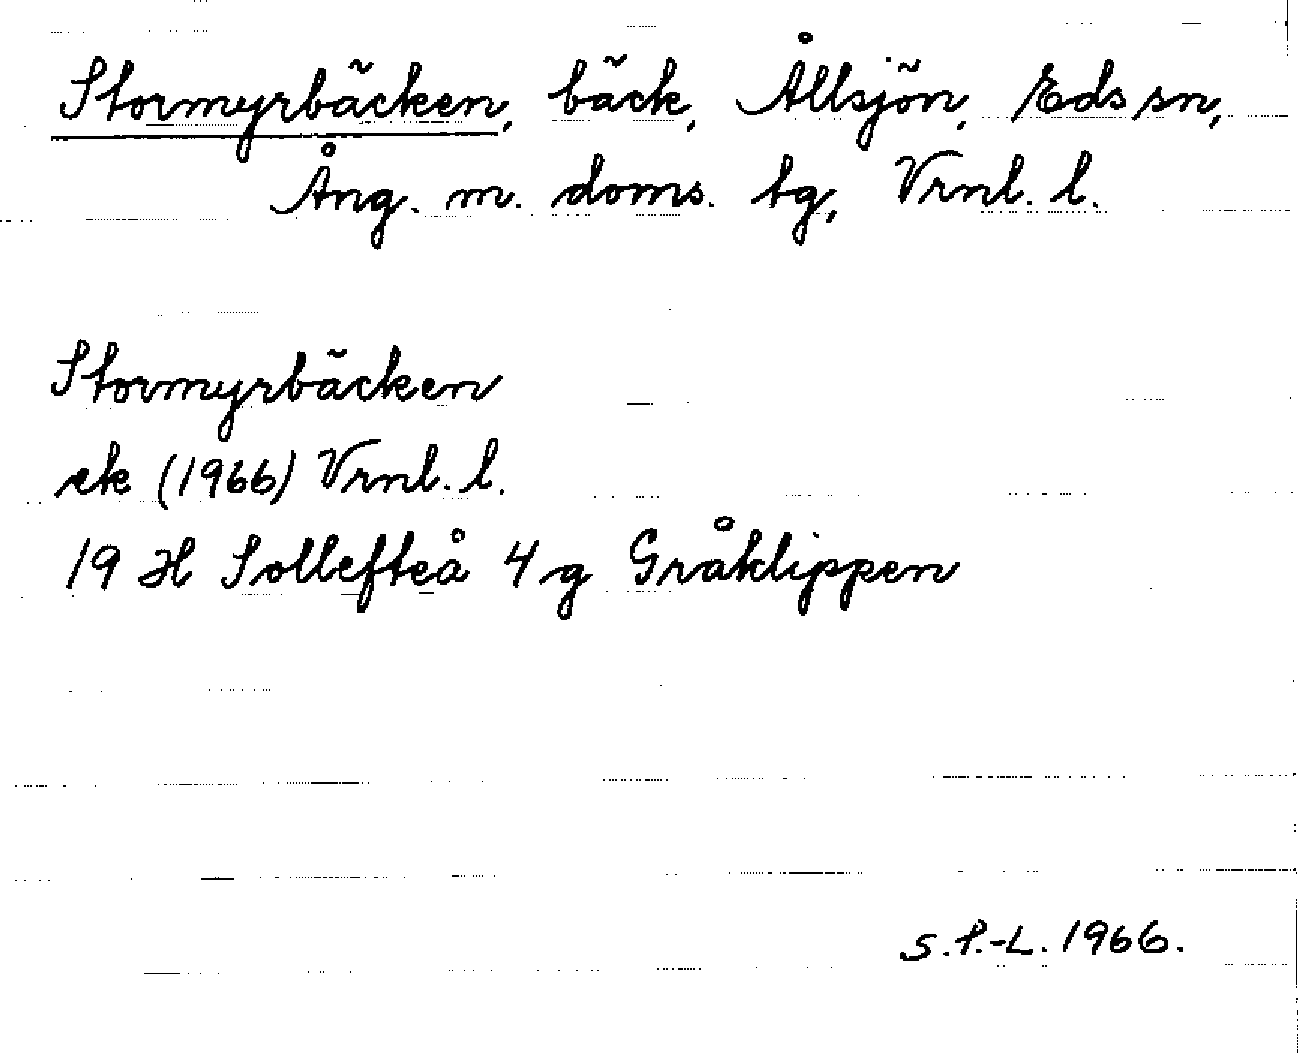 Stormyrbäcken, bäck, Ållsjön, Eds sn,
Ång. m. doms. tg, Vrnl. l.
Stormyrbäcken
ek (1966) Vrnl. l.
19 H Sollefteå 4 g Gråklippen
S.P.-L. 1966.